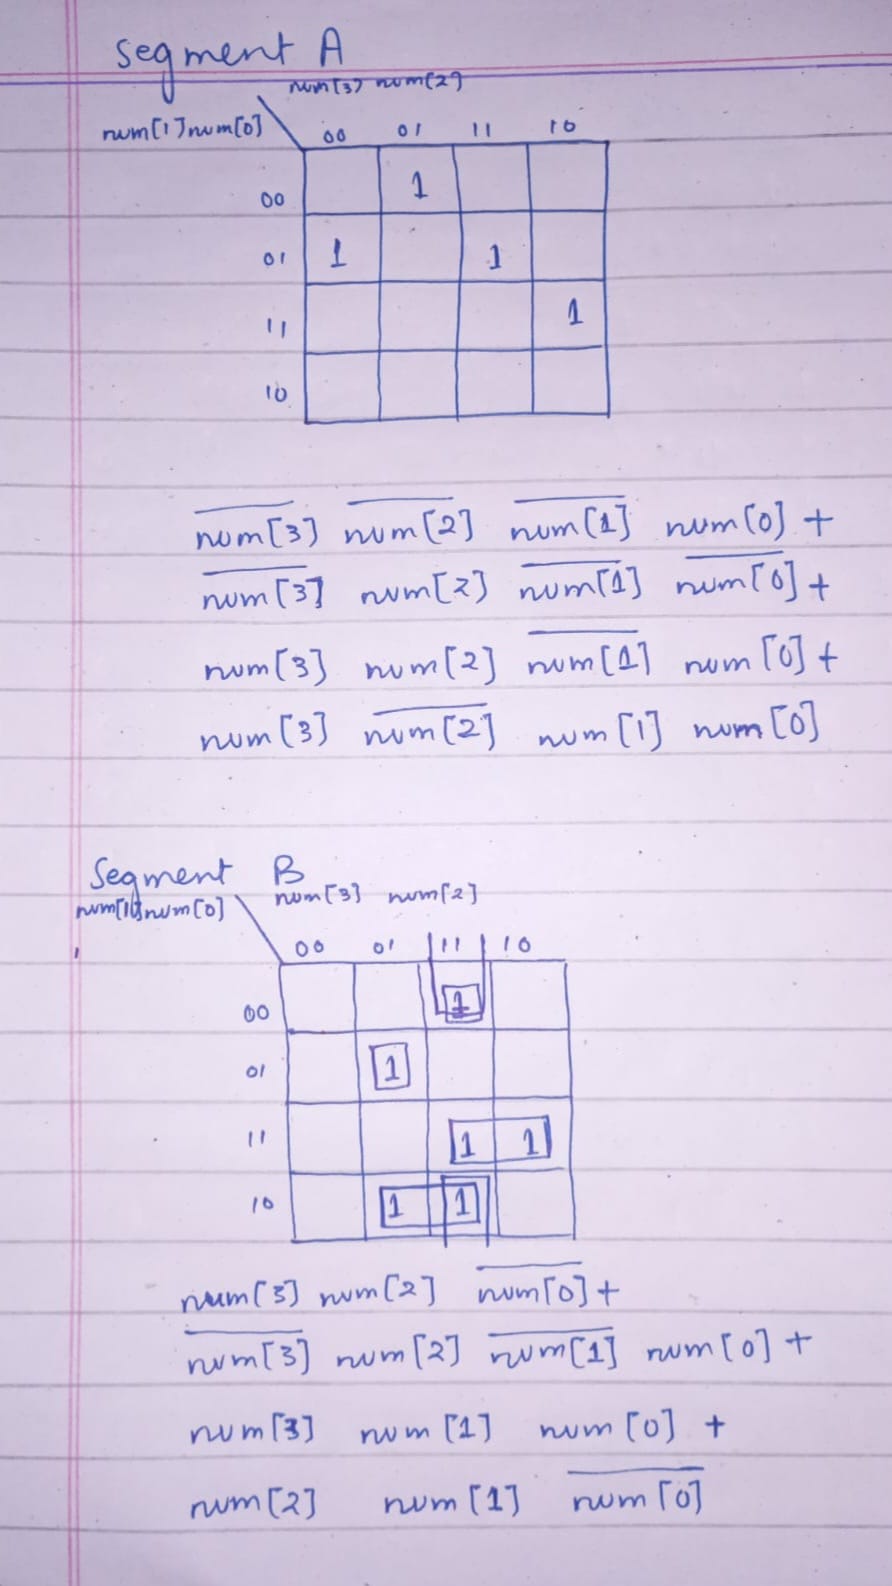 Segment A
num[3] num[2]
num[1] num[0]
00 01 11 10
00 1
01 1 1
11 1
10
n̅u̅m̅[̅3̅]̅ n̅u̅m̅[̅2̅]̅ n̅u̅m̅[̅1̅]̅ num[0] +
n̅u̅m̅[̅3̅]̅ num[2] n̅u̅m̅[̅1̅]̅ n̅u̅m̅[̅0̅]̅ +
num[3] num[2] n̅u̅m̅[̅1̅]̅ num[0] +
num[3] n̅u̅m̅[̅2̅]̅ num[1] num[0]
Segment B
num[3] num[2]
num[1] num[0]
00 01 11 10
00 1
01 1
11 1 1
10 1 1
num[3] num[2] n̅u̅m̅[̅0̅]̅ +
n̅u̅m̅[̅3̅]̅ num[2] n̅u̅m̅[̅1̅]̅ num[0] +
num[3] num[1] num[0] +
num[2] num[1] n̅u̅m̅[̅0̅]̅